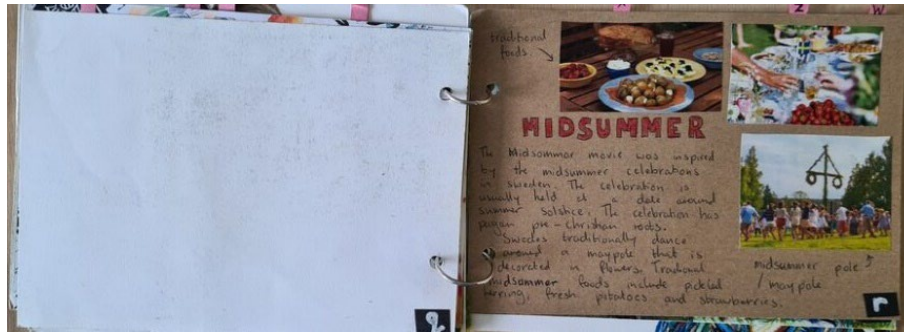 X
Z
W
traditional
foods
MIDSUMMER
The Midsommar movie was inspired
by the midsummer celebrations
in sweden. The celebration is
usually held at a date around
summer solstice. The celebration has
pagan pre-christian roots.
Swedes traditionally dance
around a maypole that is
decorated in flowers. Tradional
midsommer foods include pickled
herring, fresh potatoes and strawberries.
midsummer pole
/maypole
q
r